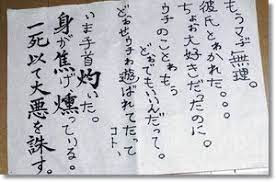 もうマヂ無理。
彼氏とゎかれた。。。
ちょお大好きだったのに。
ウチのことゎもぅ
どぉでもいいんだって。
どぉせウチゎ遊ばれてたって
コト、
いま手首灼いた。
身が焦げ燻っている。
一死以て大悪を誅す。